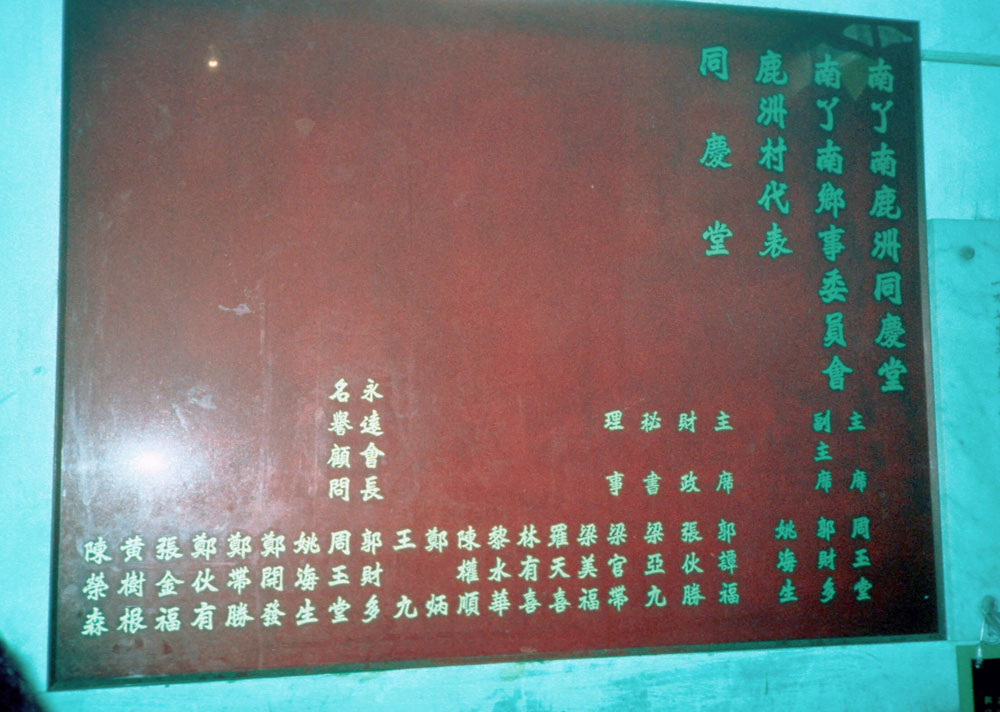 南丫南鹿洲同慶堂
主席 周玉堂
南丫南鄉事委員會
副主席 郭財多
鹿洲村代表
姚海生
同慶堂
主席 郭譚福
財政 張伙勝
秘書 梁亞九
理事 梁官帶
梁美福
羅天喜
林有喜
黎水華
陳權順
鄭炳
王九
永遠會長 郭財多
名譽顧問 周玉堂
姚海生
鄭開發
鄭帶勝
鄭伙有
張金福
黃樹根
陳榮森